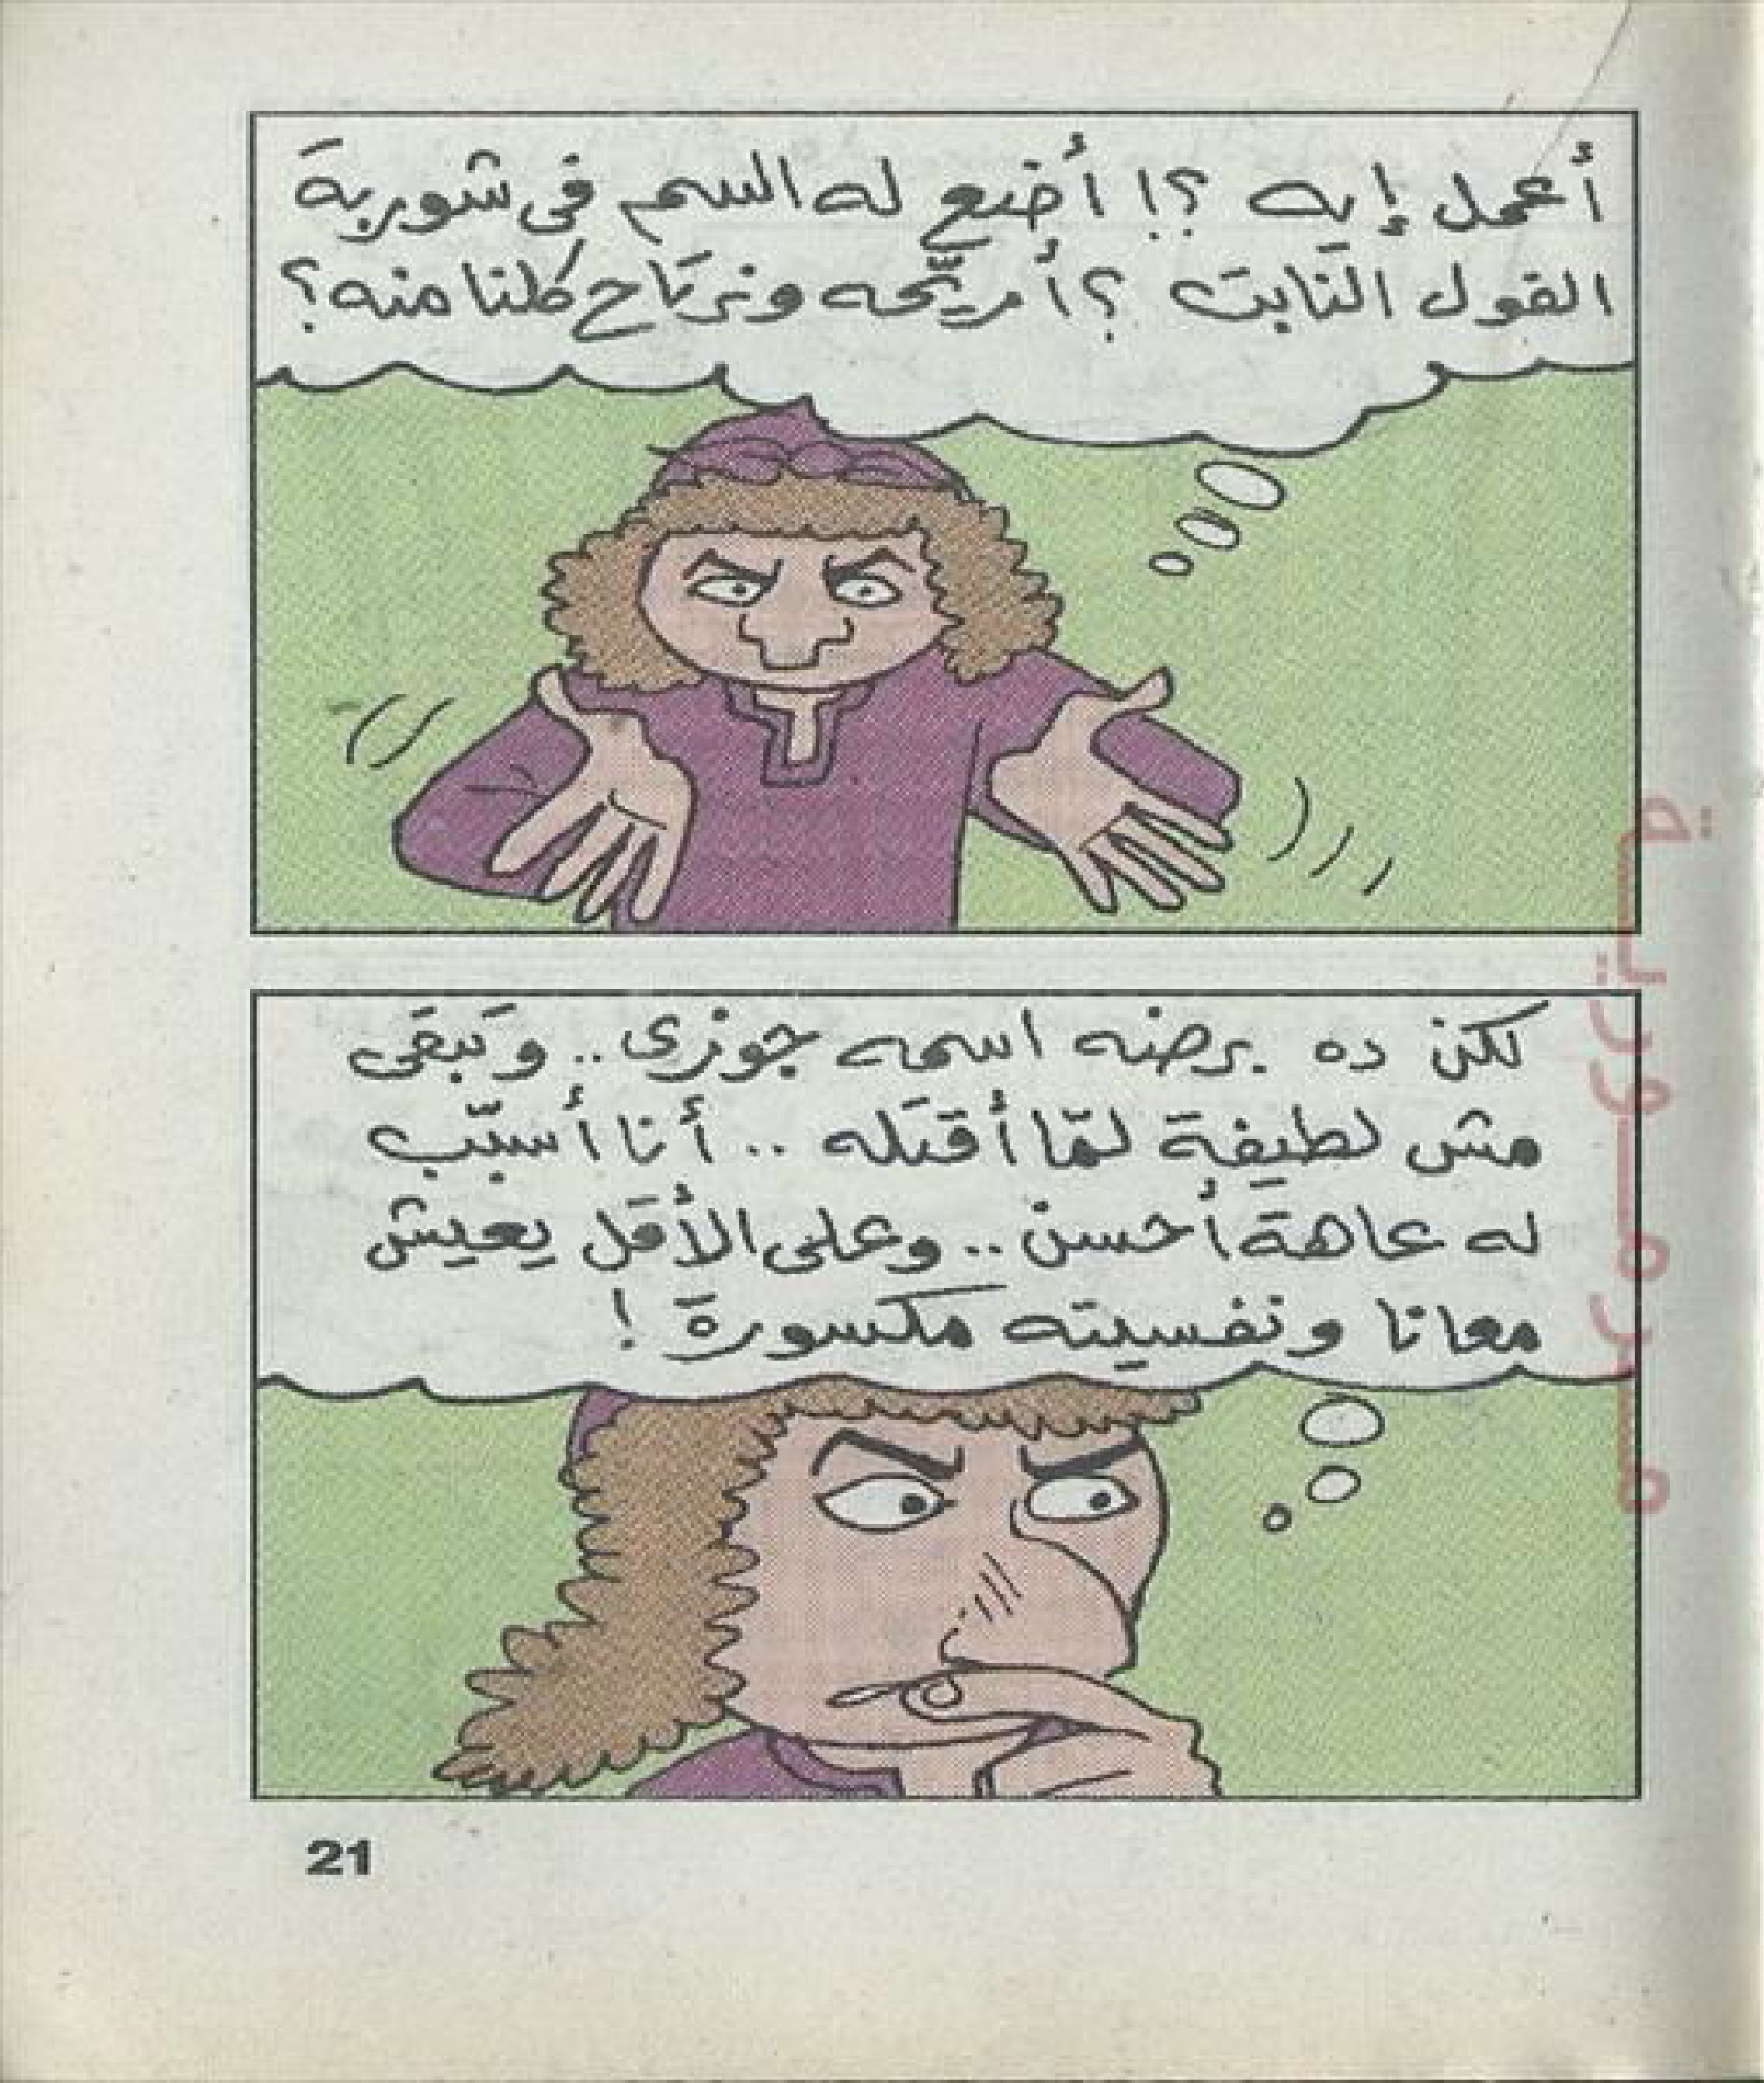 أعمل إيه ؟! أضع له السم فى شوربة
الفول النابت ؟ أريّحه ونرتاح كلنا منه ؟
لكن ده برضه اسمه جوزى .. وتبقى
مش لطيفة لمّا أقتله .. أنا أسبّب
له عاهة أحسن .. وعلى الأقل يعيش
معانا ونفسيته مكسورة !
21
سرمورية